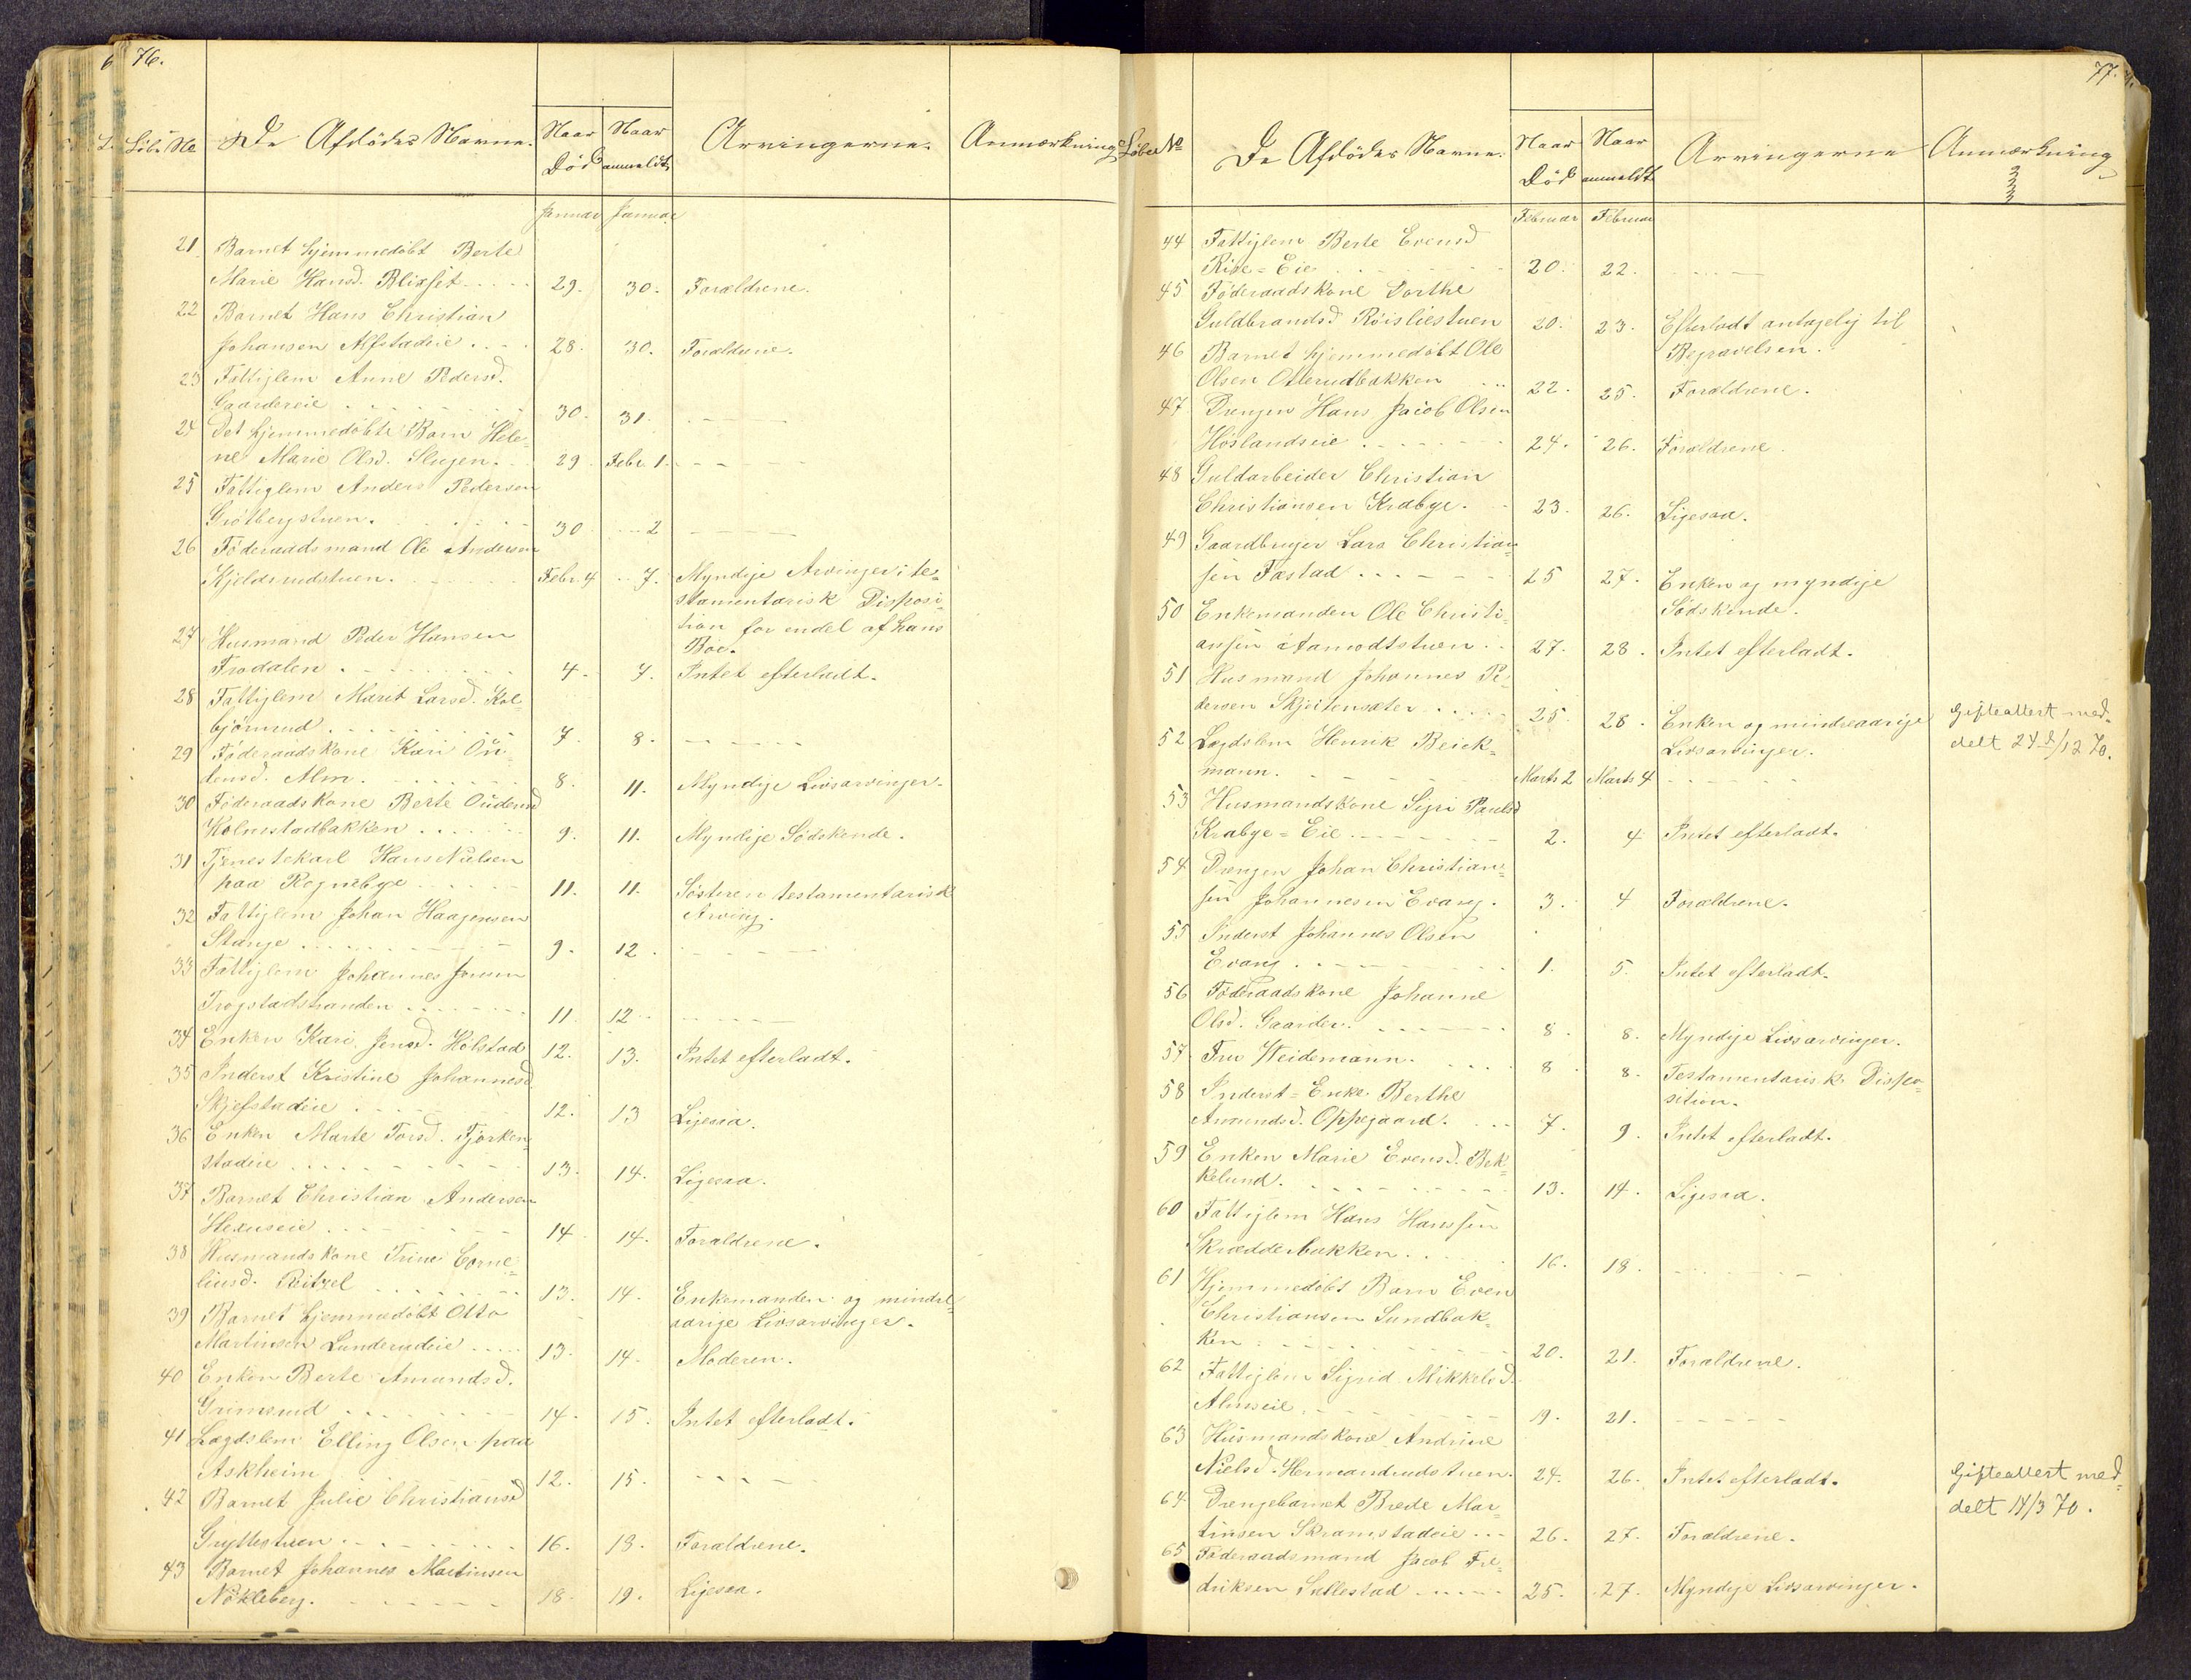 76.
Löb. No
De Afdödes Navne.
Naar Död
Naar anmeldt
Arvingerne.
Anmærkning
Januar Januar
21 Barnet hjemmedöbt Berte
Marie Hansd. Blixset 29. 30. Forældrene.
22 Barnet Hans Christian
Johansen Alfstadeie 28. 30. Forældrene.
23 Fattiglem Anne Pedersd.
Gaardereie 30. 31.
24 Det hjemmedöbte Barn Hele-
ne Marie Olsd. Slugen. 29 Febr. 1.
25 Fattiglem Anders Pedersen
Grötbergstuen. 30 2
26 Föderaadsmand Ole Andersen
Kjeldsrudstuen. Febr. 4 7. Myndige Arvinger; te-
stamentarisk Disposi-
tion for endel af hans
Boe.
27 Husmand Peder Hansen
Frodalen 4. 7. Intet efterladt.
28 Fattiglem Marit Larsd. Kol-
björnrud 7. 8.
29 Föderaadskone Kari Ou-
densd. Alm. 8. 11. Myndige Livsarvinger.
30 Föderaadskone Berte Oudensd
Kolnestadbakken 9. 11. Myndige Södskende.
31 Tjenestekarl Hans Nielsen
paa Rognebye 11. 11. Søsteren testamentarisk
Arving.
32 Fattiglem Johan Haagensen
Stange 9. 12.
33 Fattiglem Johannes Jensen
Trogstadstranden 11. 12
34 Enken Kari Jensd. Hölstad 12. 13. Intet efterladt.
35 Inderst Kristine Johannesd
Skjefstadeie 12. 13 Ligesaa.
36 Enken Marte Torsd. Fjorken-
stadeie 13. 14. Ligesaa.
37 Barnet Christian Andersen
Hexumeie 14 14. Forældrene.
38 Husmandskone Trine Corne-
liusd. 13. 14. Enkemanden og mindre-
aarige Livsarvinger.
39 Barnet hjemmedöbt Otto
Martinsen Lunderudeie 13. 14. Moderen.
40 Enken Berte Amundsd.
Grimsrud 14. 15. Intet efterladt.
41 Lægdslem Elling Olsen paa
Askheim 12. 15.
42 Barnet Julie Christiansd
Gryttestuen 16. 18. Forældrene.
43 Barnet Johannes Martinsen
Nökleberg. 18. 19. Ligesaa.
77.
Löbe No
De Afdödes Navne.
Naar Död
Naar anmeldt
Arvingerne
Anmærkning
Februar Februar
44 Fattiglem Berte Evensd
Rise-Eie 20. 22.
45 Föderaadskone Dorthe
Guldbrandsd Röisliestuen 20. 23. Efterladt antagelig til
Begravelsen.
46 Barnet hjemmedöbt Ole
Olsen Ollerudbakken 22. 25. Forældrene.
47 Drengen Hans Jacob Olsen
Höslandseie 24. 26. Forældrene.
48 Guldarbeider Christian
Christiansen Krabye. 23. 26. Ligesaa.
49 Gaardbruger Lars Christian-
sen Fæstad 25 27. Enken og myndige
Södskende.
50 Enkemanden Ole Christi-
ansen Aamodtstuen 27. 28. Intet efterladt.
51 Husmand Johannes Pe-
dersen Skjeitensæter 25. 28. Enken og mindreaarige
Livsarvinger.
Gifteattest med-
delt 27/12 70.
52 Lægdslem Henrik Beick-
mann. Marts 2 Marts 4
53 Husmandskone Sigri Paulsd
Krabye-Eie 2. 4 Intet efterladt.
54 Drengen Johan Christian-
sen Johannesen Evang. 3. 4 Forældrene.
55 Inderst Johannes Olsen
Evang 1. 5. Intet efterladt.
56 Föderaadskone Johanne
Olsd. Gaarder. 8. 8. Myndige Livsarvinger.
57 Fru Weidemann. 8 8. Testamentarisk Dispo-
sition.
58 Inderst-Enke Berthe
Amundsd. Oppegaard. 7. 9. Intet efterladt.
59 Enken Marie Evensd. Bek-
kelund. 13. 14. Ligesaa.
60 Fattiglem Hans Hanssen
Skrædderbakken. 16. 18.
61 Hjemmedöbt Barn Even
Christiansen Sundbak-
ken 20. 21. Forældrene.
62 Fattiglem Sigrid Mikkelsd.
Almseie. 19. 21.
63 Husmandskone Andrine
Nielsd. Hermandrudstuen. 24. 26. Intet efterladt.
Gifteattest med-
delt 14/3 70.
64 Drengebarnet Brede Mar-
tinsen Skramstadeie 26. 27. Forældrene.
65 Föderaadsmand Jacob Fre-
driksen Sullestad 25. 27. Myndige Livsarvinger.